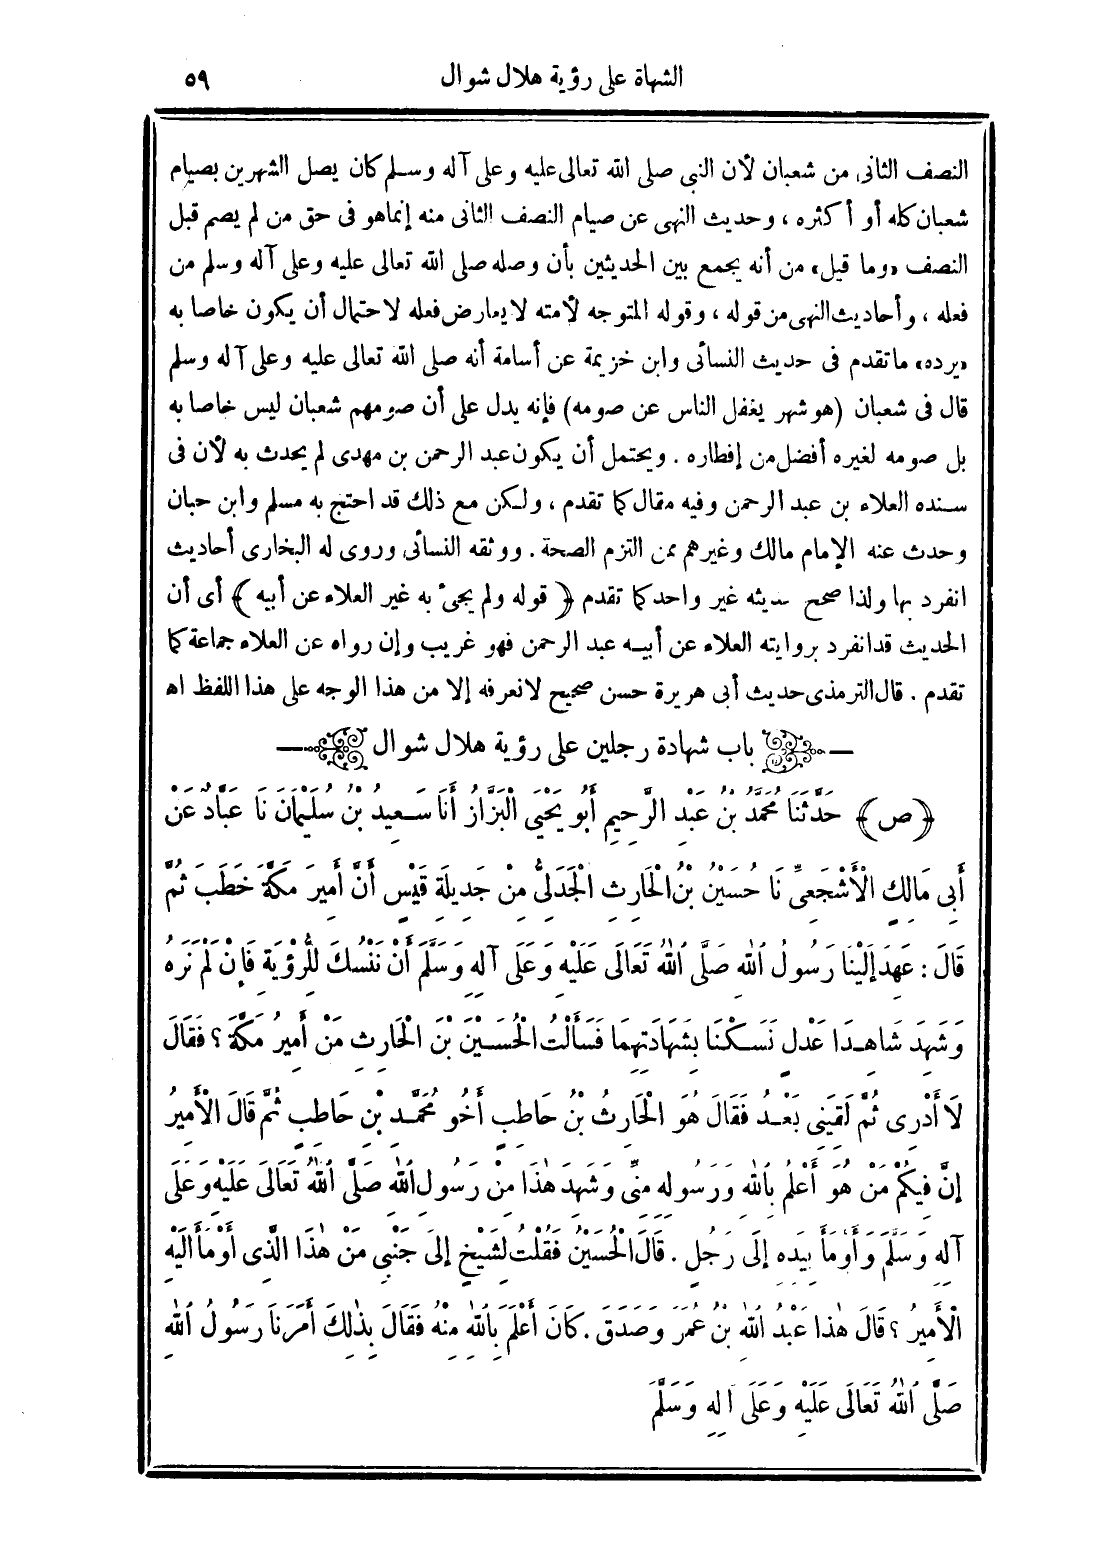 الشهاة على رؤية هلال شوال ٥٩
النصف الثانى من شعبان لأن النبى صلى الله تعالى عليه وعلى آله وسلم كان يصل الشهرين بصيام
شعبان كله أو أكثره ، وحديث النهى عن صيام النصف الثانى منه إنماهو فى حق من لم يصم قبل
النصف «وما قيل» من أنه يجمع بين الحديثين بأن وصله صلى الله تعالى عليه وعلى آله وسلم من
فعله ، وأحاديث النهى من قوله ، وقوله المتوجه لأمته لا يعارض فعله لاحتمال أن يكون خاصا به
«يرده» ماتقدم فى حديث النسائى وابن خزيمة عن أسامة أنه صلى الله تعالى عليه وعلى آله وسلم
قال فى شعبان (هو شهر يغفل الناس عن صومه) فإنه يدل على أن صومهم شعبان ليس خاصا به
بل صومه لغيره أفضل من إفطاره . ويحتمل أن يكون عبد الرحمن بن مهدى لم يحدث به لأن فى
سنده العلاء بن عبد الرحمن وفيه مقال كما تقدم ، ولكن مع ذلك قد احتج به مسلم وابن حبان
وحدث عنه الإمام مالك وغيرهم ممن التزم الصحة . ووثقه النسائى وروى له البخارى أحاديث
انفرد بها ولذا صحح حديثه غير واحد كما تقدم ﴿ قوله ولم يجىء به غير العلاء عن أبيه ﴾ أى أن
الحديث قدانفرد بروايته العلاء عن أبيه عبد الرحمن فهو غريب وإن رواه عن العلاء جماعة كما
تقدم . قال الترمذى حديث أبى هريرة حسن صحيح لانعرفه إلا من هذا الوجه على هذا اللفظ اه
باب شهادة رجلين على رؤية هلال شوال
﴿ص﴾ حَدَّثَنَا مُحَمَّدُ بْنُ عَبْدِ الرَّحِيمِ أَبُو يَحْيَى الْبَزَّازُ أَنَا سَعِيدُ بْنُ سُلَيْمَانَ نَا عَبَّادٌ عَنْ
أَبِى مَالِكٍ الْأَشْجَعِىِّ نَا حُسَيْنُ بْنُ الْحَارِثِ الْجَدَلِىُّ مِنْ جَدِيلَةِ قَيْسٍ أَنَّ أَمِيرَ مَكَّةَ خَطَبَ ثُمَّ
قَالَ : عَهِدَ إِلَيْنَا رَسُولُ اللهِ صَلَّى اللهُ تَعَالَى عَلَيْهِ وَعَلَى آلِهِ وَسَلَّمَ أَنْ نَنْسُكَ لِلرُّؤْيَةِ فَإِنْ لَمْ نَرَهُ
وَشَهِدَ شَاهِدَا عَدْلٍ نَسَكْنَا بِشَهَادَتِهِمَا فَسَأَلْتُ الْحُسَيْنَ بْنَ الْحَارِثِ مَنْ أَمِيرُ مَكَّةَ ؟ فَقَالَ
لَا أَدْرِى ثُمَّ لَقِيَنِى بَعْدُ فَقَالَ هُوَ الْحَارِثُ بْنُ حَاطِبٍ أَخُو مُحَمَّدِ بْنِ حَاطِبٍ ثُمَّ قَالَ الْأَمِيرُ
إِنَّ فِيكُمْ مَنْ هُوَ أَعْلَمُ بِاللهِ وَرَسُولِهِ مِنِّى وَشَهِدَ هٰذَا مِنْ رَسُولِ اللهِ صَلَّى اللهُ تَعَالَى عَلَيْهِ وَعَلَى
آلِهِ وَسَلَّمَ وَأَوْمَأَ بِيَدِهِ إِلَى رَجُلٍ . قَالَ الْحُسَيْنُ فَقُلْتُ لِشَيْخٍ إِلَى جَنْبِى مَنْ هٰذَا الَّذِى أَوْمَأَ الَيْهِ
الْأَمِيرُ ؟ قَالَ هٰذَا عَبْدُ اللهِ بْنُ عُمَرَ وَصَدَقَ . كَانَ أَعْلَمَ بِاللهِ مِنْهُ فَقَالَ بِذٰلِكَ أَمَرَنَا رَسُولُ اللهِ
صَلَّى اللهُ تَعَالَى عَلَيْهِ وَعَلَى آلِهِ وَسَلَّمَ